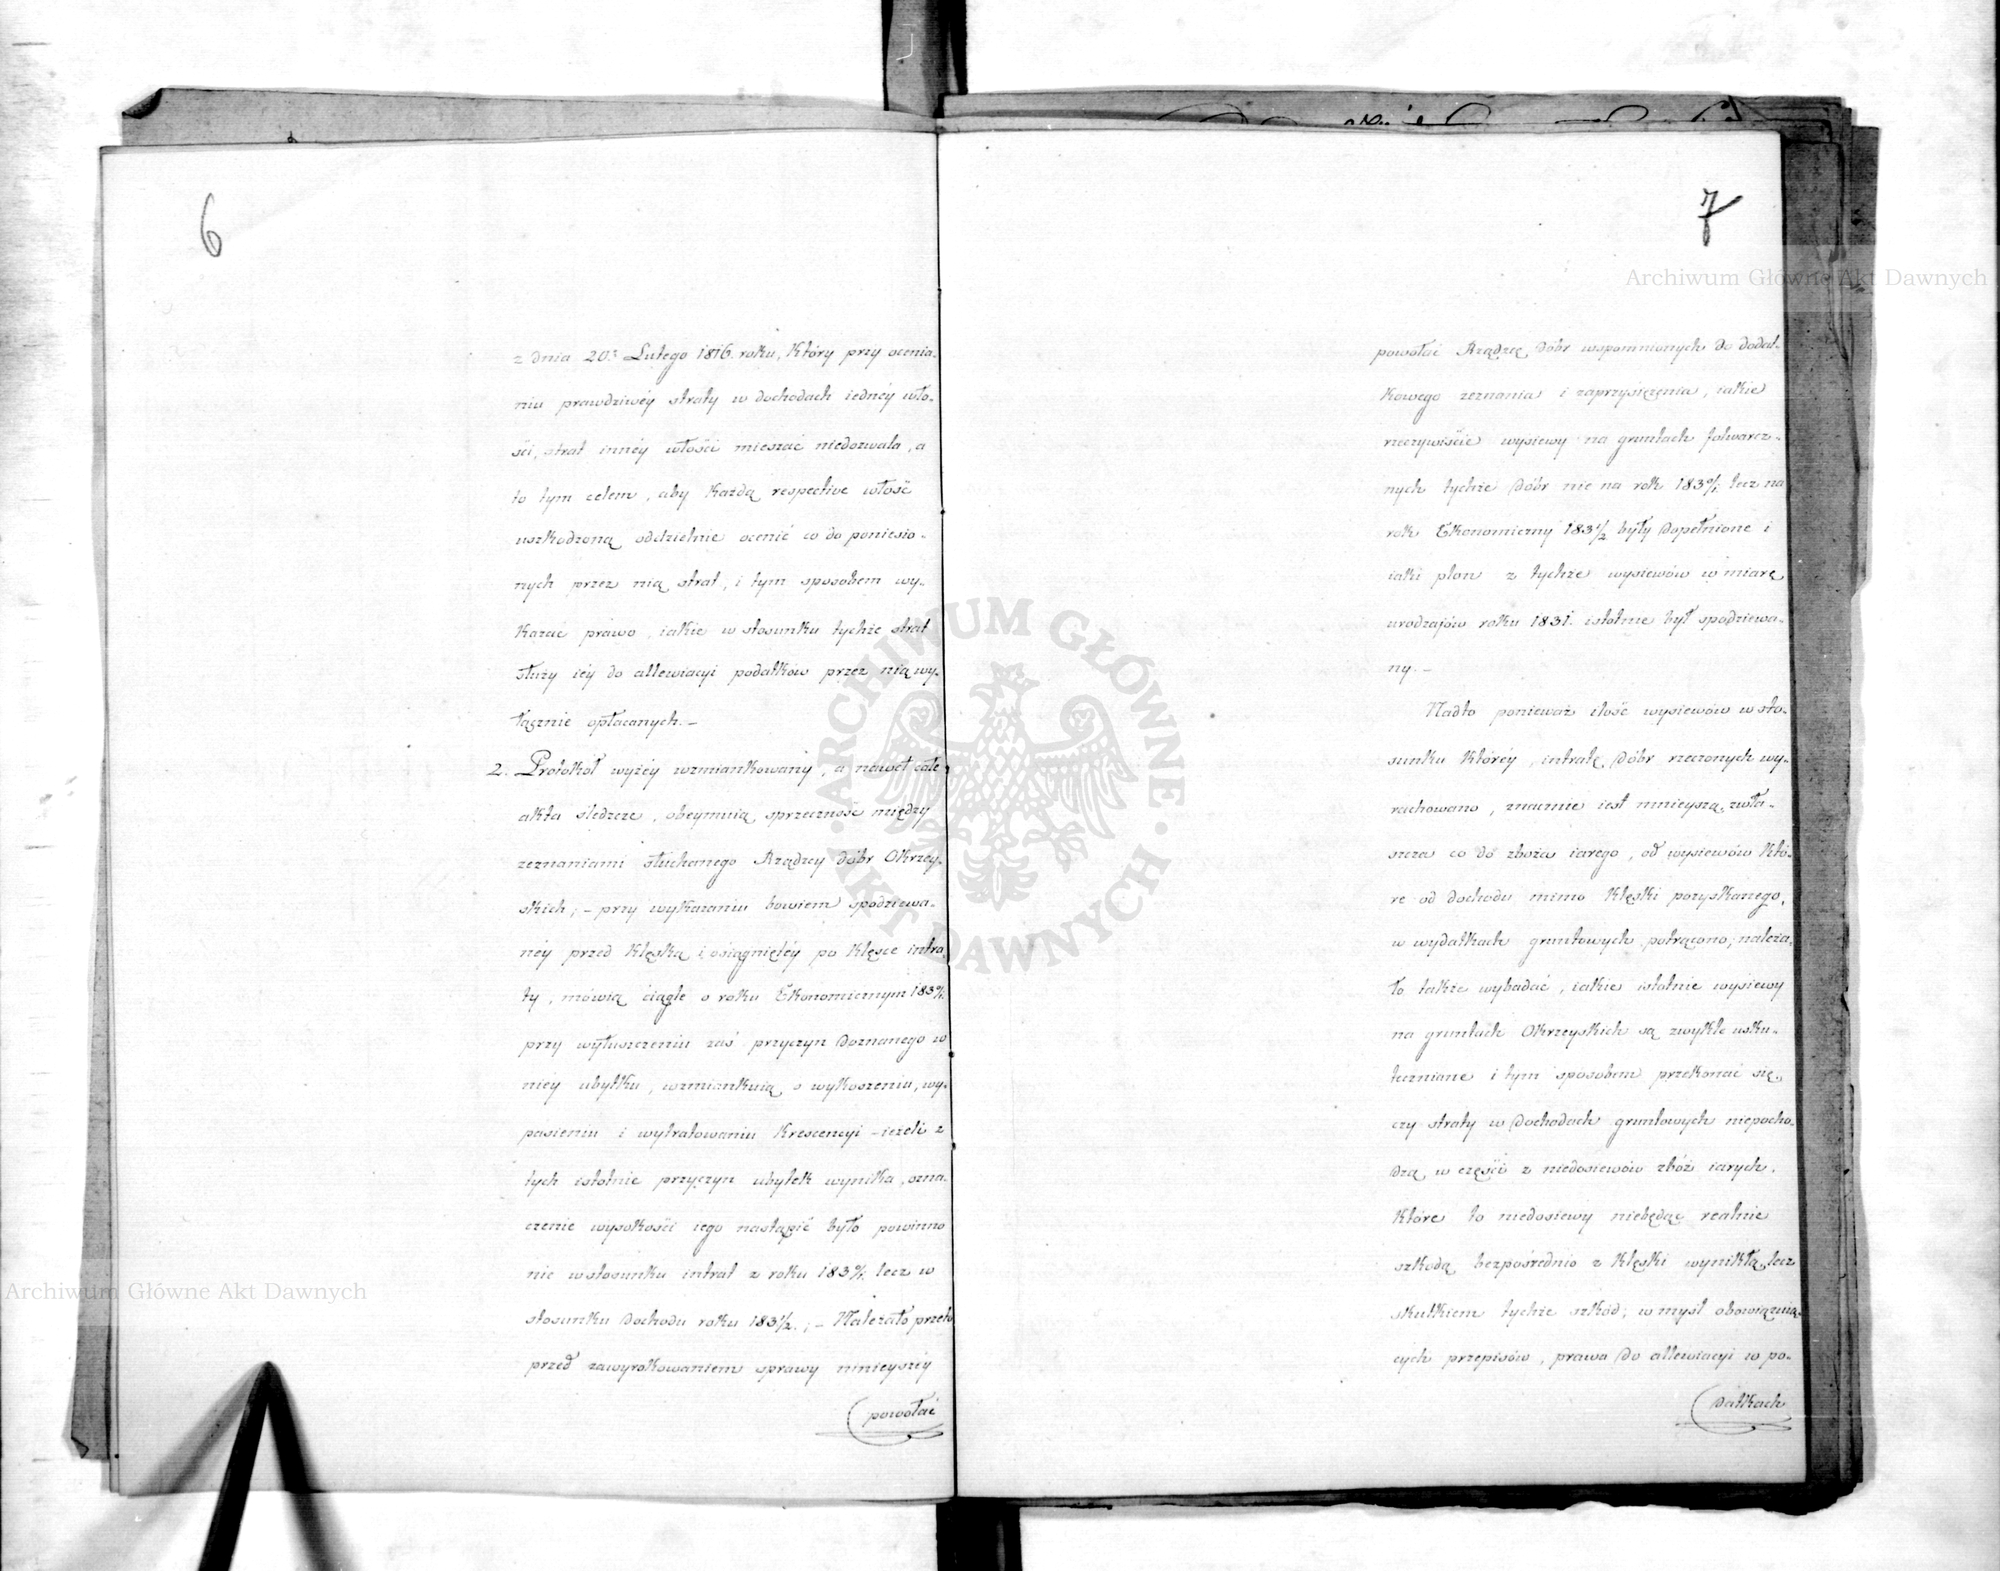 6
z dnia 20. Lutego 1816. roku, który przy ocenia-
niu prawdziwéy straty w dochodach iednéy wło-
ści, strat innéy włości mieszać niedozwala, a
to tym celem, aby każdą respective włość
uszkodzoną oddzielnie ocenić co do poniesio-
nych przez nią strat, i tym sposobem wy-
kazać prawo, iakie w stosunku tychże strat
służy iéy do allewiacyi podatków przez nią wy-
łącznie opłacanych.–
2. Protokół wyżéy wzmiankowany, a nawet całe
akta śledcze, obeymuią sprzeczność między
zeznaniami słuchanego Rządzcy dóbr Okrzey-
skich; – przy wykazaniu bowiem spodziewa-
néy przed klęską i osiągniętéy po klęsce intra-
ty, mówią ciągle o roku Ekonomicznym 183 0/1.
przy wyłuszczeniu zaś przyczyn doznanego w
niéy ubytku, wzmiankuią o wykoszeniu, wy-
pasieniu i wytratowaniu krescencyi – ieżeli z
tych istotnie przyczyn ubytek wynika, ozna-
czenie wysokości iego nastąpić było powinno
nie w stosunku intrat z roku 183 0/1. lecz w
stosunku dochodu roku 183 1/2.; – Należało przeto
przed zawyrokowaniem sprawy ninieyszéy
powołać
7
powołać Rządzcę dóbr wspomnionych do dodat-
kowego zeznania i zaprzysiężenia, iakie
rzeczywiście wysiewy na gruntach folwarcz-
nych tychże dóbr nie na rok 183 0/1. lecz na
rok Ekonomiczny 183 1/2 były dopełnione i
iaki plon z tychże wysiewów w miarę
urodzajów roku 1831. istotnie był spodziewa-
ny. –
Nadto ponieważ ilość wysiewów w sto-
sunku któréy, intratę dóbr rzeczonych wy-
rachowano, znacznie iest mnieyszą, zwła-
szcza co do zboża iarego, od wysiewów któ-
re od dochodu mimo klęski pozyskanego,
w wydatkach gruntowych potrącono; należa-
ło także wybadać, iakie istotnie wysiewy
na gruntach Okrzeyskich są zwykle usku-
teczniane i tym sposobem przekonać się,
czy straty w dochodach gruntowych niepocho-
dzą w części z niedosiewów zbóż iarych,
które to niedosiewy niebędąc realnie
szkodą bezpośrednio z klęski wynikłą, lecz
skutkiem tychże szkód; w myśl obowiązuią-
cych przepisów, prawa do allewiacyi w po-
datkach
Archiwum Główne Akt Dawnych
Archiwum Główne Akt Dawnych
ARCHIWUM GŁÓWNE
AKT DAWNYCH